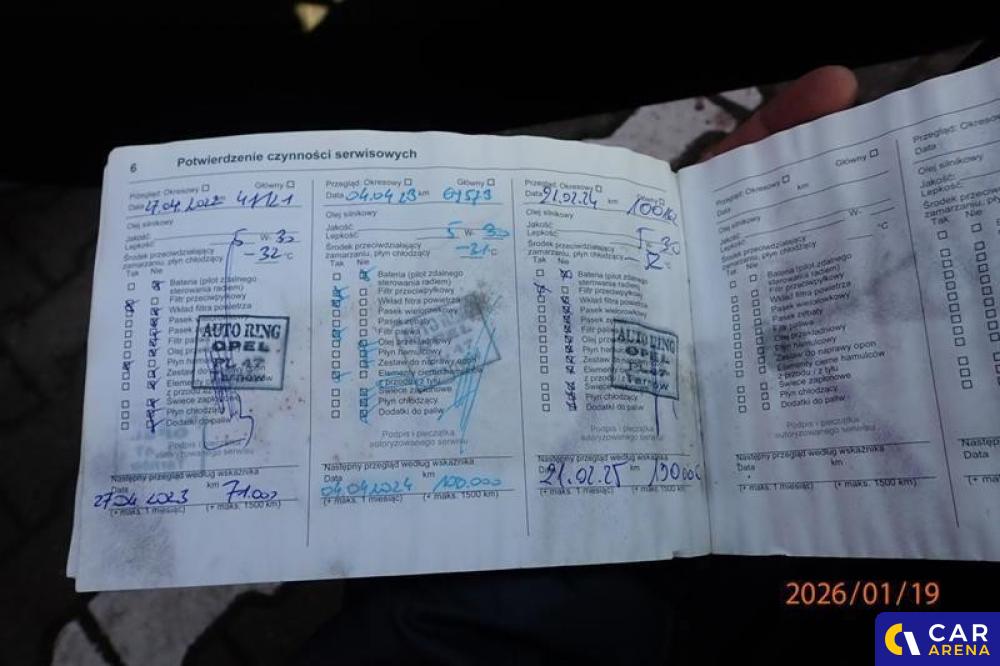 6 Potwierdzenie czynności serwisowych
Przegląd: Okresowy Główny
Data 27.04.2022 41121
Olej silnikowy
Jakość:
Lepkość: 5 W- 30
Środek przeciwdziałający
zamarzaniu, płyn chłodzący -32 °C
Tak Nie
Bateria (pilot zdalnego
sterowania radiem)
Filtr przeciwpyłkowy
Wkład filtra powietrza
Pasek
Pasek
Filtr
Olej
Płyn
Zestaw do
Elementy
z przodu
Świece
Płyn chłodzący
Dodatki do paliw
AUTO RING
OPEL
PL 47
Tarnów
Podpis i pieczątka
autoryzowanego serwisu
Następny przegląd według wskaźnika
Data km
27.04.2023 71.000
(+ maks. 1 miesiąc) (+ maks. 1500 km)
Przegląd: Okresowy Główny
Data 04.04.23 km 61573
Olej silnikowy
Jakość:
Lepkość: 5 W- 30
Środek przeciwdziałający
zamarzaniu, płyn chłodzący -31 °C
Tak Nie
Bateria (pilot zdalnego
sterowania radiem)
Filtr przeciwpyłkowy
Wkład filtra powietrza
Pasek wielorowkowy
Pasek zębaty
Filtr paliwa
Olej przekładniowy
Płyn hamulcowy
Zestaw do naprawy opon
Elementy cierne hamulców
z przodu i z tyłu
Świece zapłonowe
Płyn chłodzący
Dodatki do paliw
Podpis i pieczątka
autoryzowanego serwisu
Następny przegląd według wskaźnika
Data km
04.04.2024 100.000
(+ maks. 1 miesiąc) (+ maks. 1500 km)
Przegląd: Okresowy Główny
Data 21.02.24 km
Olej silnikowy
Jakość:
Lepkość: 5 W- 30
Środek przeciwdziałający
zamarzaniu, płyn chłodzący °C
Tak Nie
Bateria (pilot zdalnego
sterowania radiem)
Filtr przeciwpyłkowy
Wkład filtra powietrza
Pasek wielorowkowy
Pasek zębaty
Filtr paliwa
Olej
Płyn
Zestaw do
Elementy
z przodu i z tyłu
Świece zapłonowe
Płyn chłodzący
Dodatki do paliw
AUTO RING
OPEL
PL 47
Tarnów
Podpis i pieczątka
autoryzowanego serwisu
Następny przegląd według wskaźnika
Data km
21.02.25 130000
(+ maks. 1 miesiąc) (+ maks. 1500 km)
Przegląd: Okresowy Główny
Data km
Olej silnikowy
Jakość:
Lepkość: W-
Środek przeciwdziałający
zamarzaniu, płyn chłodzący °C
Tak Nie
Bateria (pilot zdalnego
sterowania radiem)
Filtr przeciwpyłkowy
Wkład filtra powietrza
Pasek wielorowkowy
Pasek zębaty
Filtr paliwa
Olej przekładniowy
Płyn hamulcowy
Zestaw do naprawy opon
Elementy cierne hamulców
z przodu i z tyłu
Świece zapłonowe
Płyn chłodzący
Dodatki do paliw
Podpis i pieczątka
autoryzowanego serwisu
Następny przegląd według wskaźnika
Data km
(+ maks. 1 miesiąc) (+ maks. 1500 km)
Przegląd: Okresowy
Data
Olej silnikowy
Jakość:
Lepkość:
Środek przeciwdziałający
zamarzaniu, płyn
Tak Nie
Następny
Data
(+ maks.
2026/01/19
CAR
ARENA